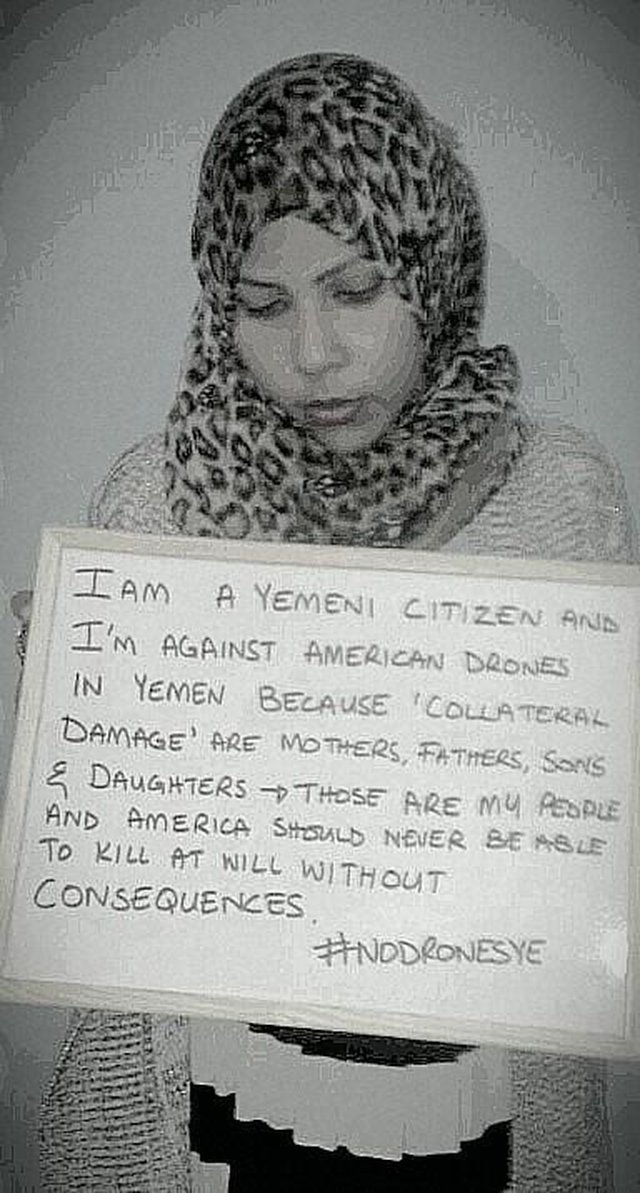 I AM A YEMENI CITIZEN AND
I'M AGAINST AMERICAN DRONES
IN YEMEN BECAUSE 'COLLATERAL
DAMAGE' ARE MOTHERS, FATHERS, SONS
& DAUGHTERS → THOSE ARE MY PEOPLE
AND AMERICA SHOULD NEVER BE ABLE
TO KILL AT WILL WITHOUT
CONSEQUENCES.
#NODRONESYE